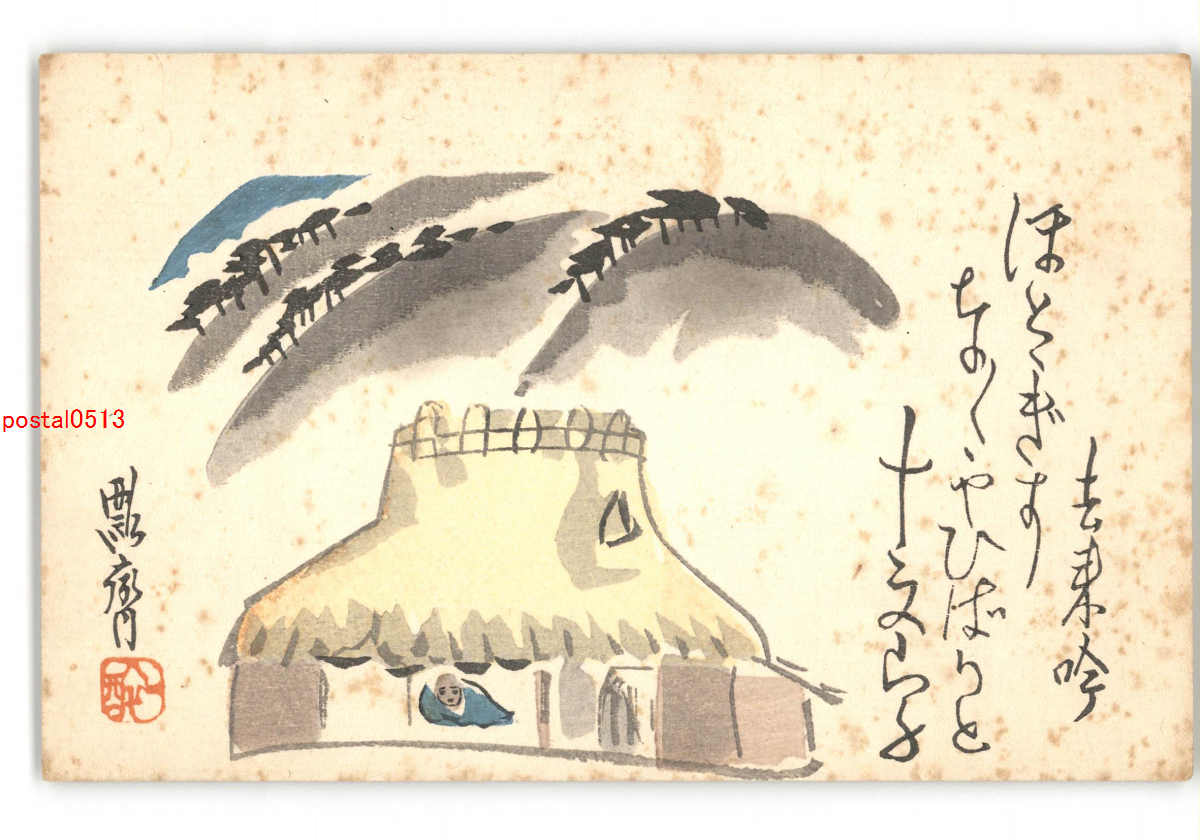 去来吟
ほとゝぎす
なく〳〵やひばりと
十文字
postal0513